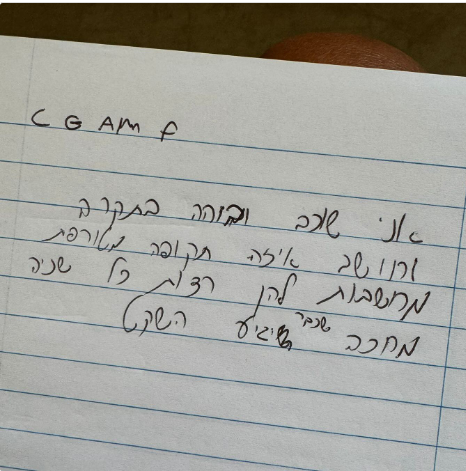 C G Am F
אני שוכב ובוהה בתקרה
וחושב איזה תקופה מטורפת
מחשבות להן רצות כל שניה
מחכה שכבר שיגיע השקט